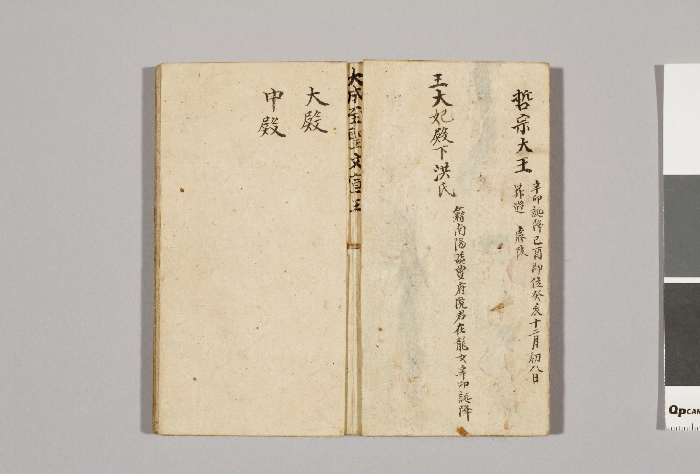 哲宗大王
辛卯誕降己酉即位癸亥十二月初八日
昇遐 睿陵
王大妃殿下洪氏
籍南陽 府院君在龍女辛卯誕降
大成至聖文宣王
大殿
中殿
QPCAR